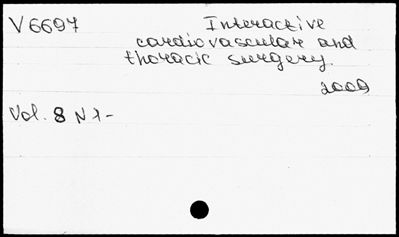 V6697 Interactive
cardiovascular and
thoracic surgery.
2009
Vol. 8 N 1-